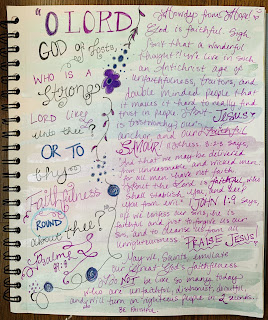 "O LORD
GOD of Hosts,
WHO IS A
Strong
LORD like
unto thee?
OR TO
thy
Faithfulness
ROUND
about thee?"
Psalms
89:8
Howdy from Hope!
God is faithful. Sigh
Isn't that a wonderful
thought? We live in such
an Antichrist age of
unfaithfulness, traitors, and
double minded people that
it makes it hard to really find
trust in people. Trust JESUS!
is trustworthy; our
anchor and our Faithful
SAVIOUR! Thess 3:2-3 says,
"And that we may be delivered
from unreasonable and wicked men:
for all men have not faith.
But the Lord is faithful, who
shall stablish you, and keep
you from evil." I JOHN 1:9 says,
"If we confess our sins, he is
faithful and just to forgive us our
sins, and to cleanse us from all
unrighteousness." PRAISE JESUS!
May we, Saints, emulate
our Great God's faithfulness
and NOT be like so many today
who are unfaithful, dishonest,
and will turn on righteous people in 2 seconds.
BE FAITHFUL